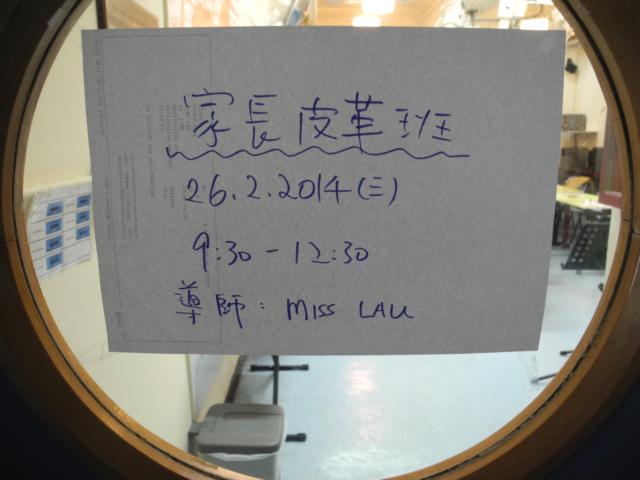 家長皮革班
26.2.2014(三)
9:30-12:30
導師: MISS LAU